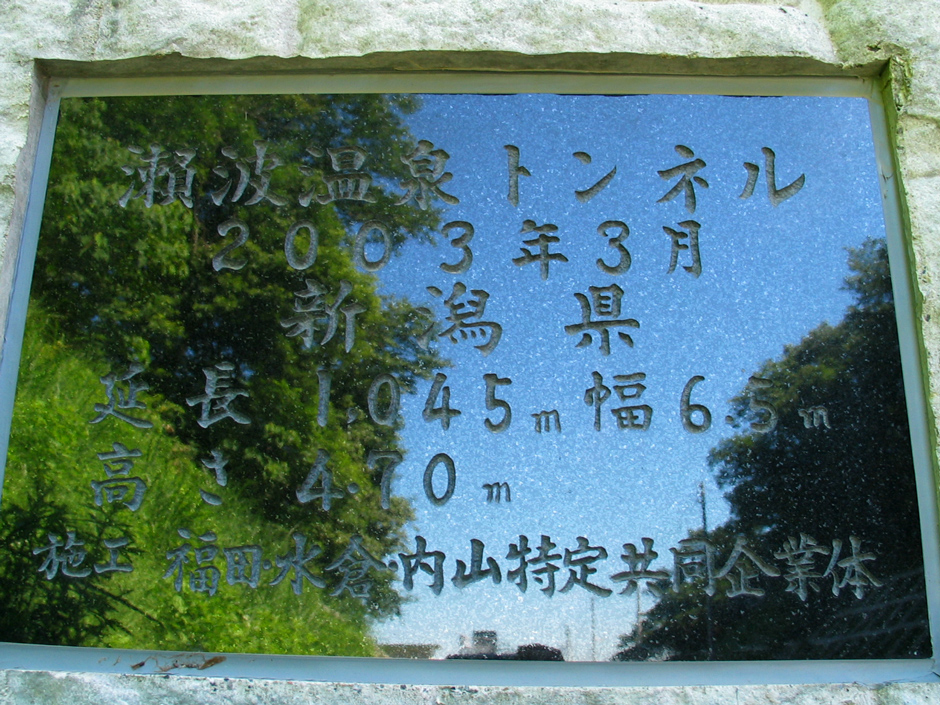 瀬波温泉トンネル
2003年3月
新潟県
延長1,045m幅6.5m
高さ4.70m
施工 福田・水倉・内山特定共同企業体